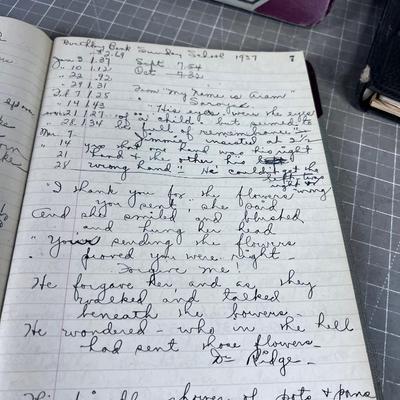 Birthday Bank Sunday School 1937 7
$2.69
Jan. 3 1.37 Sept 7.54
" 10 1.12 Oct 7.32
" 22 .92
" 29 1.31 From "My Name is Aram"
Feb 7 1.25 Saroyan
" 14 1.43 "His eyes were the eyes
21 1.27 of a child, but seemed to
" 28 1.34 be full of remembrance"
Mar. 7 Jimmie insisted at 3½
" 14 that one hand was his right
21 hand & the other his
28 wrong hand". He couldn't get the
"I thank you for the flowers
you sent," she said
And she smiled and blushed
and hung her head
"Your sending the flowers
proved you were right—
Forgive me!
He forgave her, and as they
walked and talked
beneath the bowers—
He wondered - who in the hell
had sent those flowers—
Dr Ridge—
shower of pots & pans